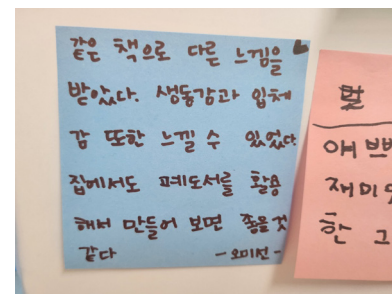 같은 책으로 다른 느낌을
받았다. 생동감과 입체
감 또한 느낄 수 있었다
집에서도 폐도서를 활용
해서 만들어 보면 좋을것
같다 -오미선-
애쁘
재미있
한 그